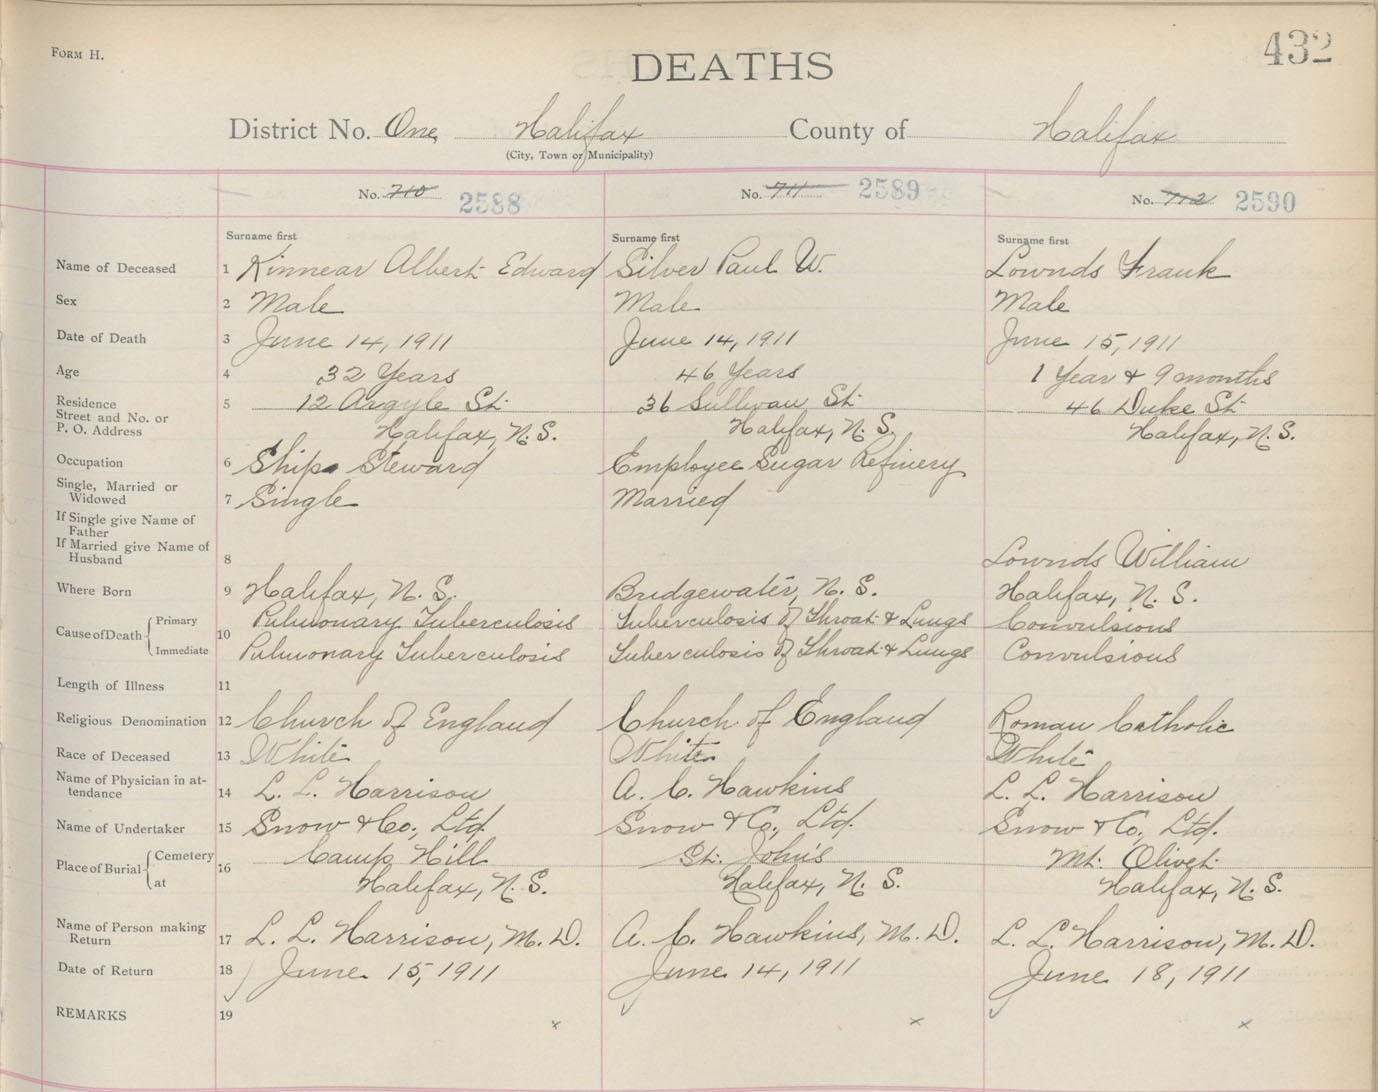 Form H.
DEATHS
432
District No. One, Halifax County of Halifax
(City, Town or Municipality)
No. 710 2588 No. 711 2589 No. 712 2590
Surname first Surname first Surname first
Name of Deceased 1 Kinnear Albert Edward Silver Paul W. Lownds Frank
Sex 2 Male Male Male
Date of Death 3 June 14, 1911 June 14, 1911 June 15, 1911
Age 4 32 Years 46 Years 1 Year & 9 months
Residence 5 12 Argyle St. 36 Sullivan St. 46 Duke St.
Street and No. or
P. O. Address Halifax, N. S. Halifax, N. S. Halifax, N. S.
Occupation 6 Ships Steward Employee Sugar Refinery
Single, Married or
Widowed 7 Single Married
If Single give Name of
Father
If Married give Name of
Husband 8 Lownds William
Where Born 9 Halifax, N. S. Bridgewater, N. S. Halifax, N. S.
Cause of Death Primary 10 Pulmonary Tuberculosis Tuberculosis of Throat & Lungs Convulsions
Immediate Pulmonary Tuberculosis Tuberculosis of Throat & Lungs Convulsions
Length of Illness 11
Religious Denomination 12 Church of England Church of England Roman Catholic
Race of Deceased 13 White White White
Name of Physician in at-
tendance 14 L. L. Harrison A. C. Hawkins L. L. Harrison
Name of Undertaker 15 Snow & Co., Ltd. Snow & Co., Ltd. Snow & Co., Ltd.
Place of Burial Cemetery 16 Camp Hill St. John's Mt. Olivet
at Halifax, N. S. Halifax, N. S. Halifax, N. S.
Name of Person making
Return 17 L. L. Harrison, M. D. A. C. Hawkins, M. D. L. L. Harrison, M. D.
Date of Return 18 June 15, 1911 June 14, 1911 June 18, 1911
REMARKS 19 x x x